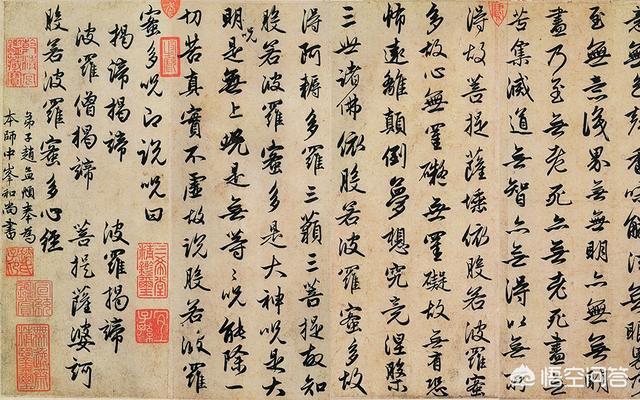 至無意識界無無明亦無無明
盡乃至無老死亦無老死盡無
苦集滅道無智亦無得以無所
得故菩提薩埵依般若波羅蜜
多故心無罣礙無罣礙故無有恐
怖遠離顛倒夢想究竟涅槃
三世諸佛依般若波羅蜜多故
得阿耨多羅三藐三菩提故知
般若波羅蜜多是大神咒是大
明咒是無上咒是無等〻咒能除一
切苦真實不虛故說般若波羅
蜜多咒即說咒曰
揭諦揭諦 波羅揭諦
波羅僧揭諦 菩提薩婆訶
般若波羅蜜多心經
弟子趙孟頫奉為
本師中峯和尚書
三希堂精鑑璽
宜子孫
悟空问答